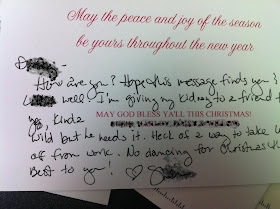 May the peace and joy of the season
be yours throughout the new year
How are you? Hope this message finds you &
well. I'm giving my kidney to a friend
yes, kinda
MAY GOD BLESS YA'LL THIS CHRISTMAS!
wild but he needs it. Heck of a way to take
off from work. No dancing for Christmas
Best to you! ♡